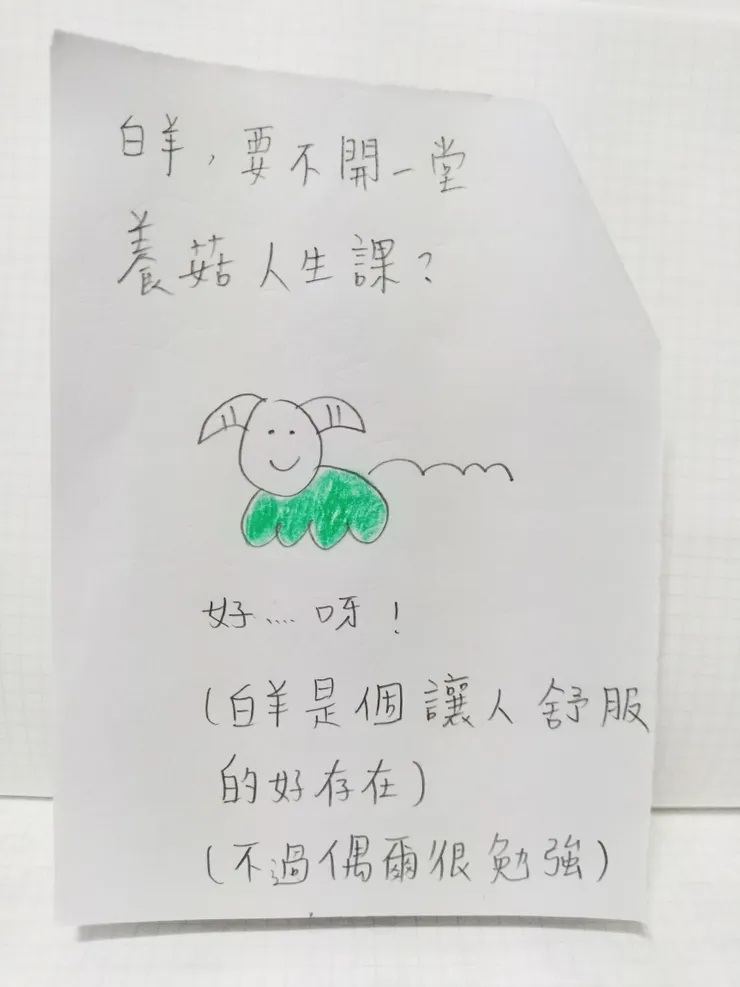 白羊，要不開一堂
養菇人生課？
好....呀！
(白羊是個讓人舒服
的好存在)
(不過偶爾很勉強)